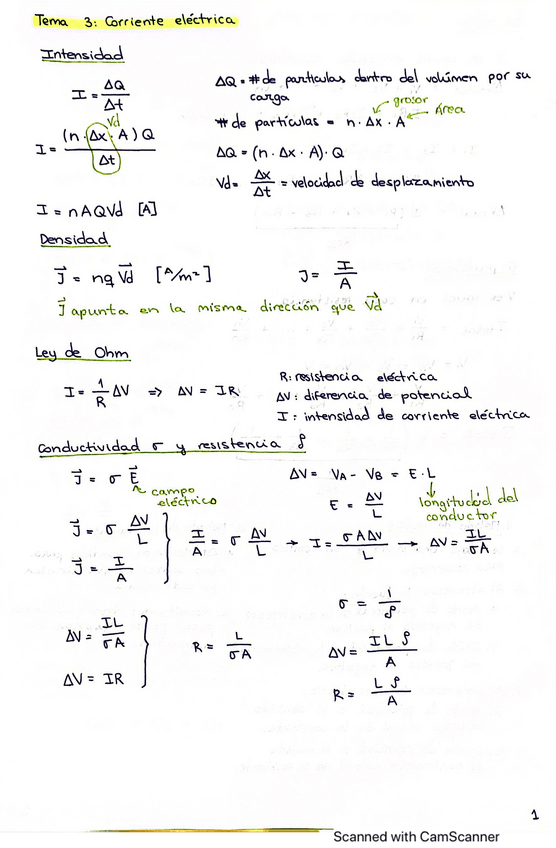 Tema 3: Corriente eléctrica
Intensidad
I = ΔQ/Δt
ΔQ = # de partículas dentro del volúmen por su carga
# de partículas = n · Δx · A
grosor
Área
Vd
I = (n · Δx · A) Q / Δt
ΔQ = (n · Δx · A) · Q
Vd = Δx/Δt = velocidad de desplazamiento
I = nAQVd [A]
Densidad
J⃗ = nq V⃗d [A/m²]
J = I/A
J⃗ apunta en la misma dirección que V⃗d
Ley de Ohm
I = 1/R ΔV ⇒ ΔV = IR
R: resistencia eléctrica
ΔV: diferencia de potencial
I: intensidad de corriente eléctrica
Conductividad σ y resistencia ρ
J⃗ = σ E⃗
campo eléctrico
ΔV = VA - VB = E · L
longitud del conductor
E = ΔV/L
J⃗ = σ ΔV/L
J⃗ = I/A
I/A = σ ΔV/L → I = σAΔV/L → ΔV = IL/σA
σ = 1/ρ
ΔV = IL/σA
ΔV = IR
R = L/σA
ΔV = ILρ/A
R = Lρ/A
1
Scanned with CamScanner